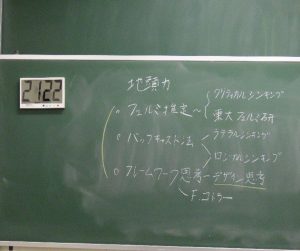 21:22
地頭力
○ フェルミ推定〜
クリティカルシンキング
東大フェルミ研
○ バックキャスト法
ラテラルシンキング
ロジカルシンキング
○ フレームワーク思考〜デザイン思考
F.コトラー